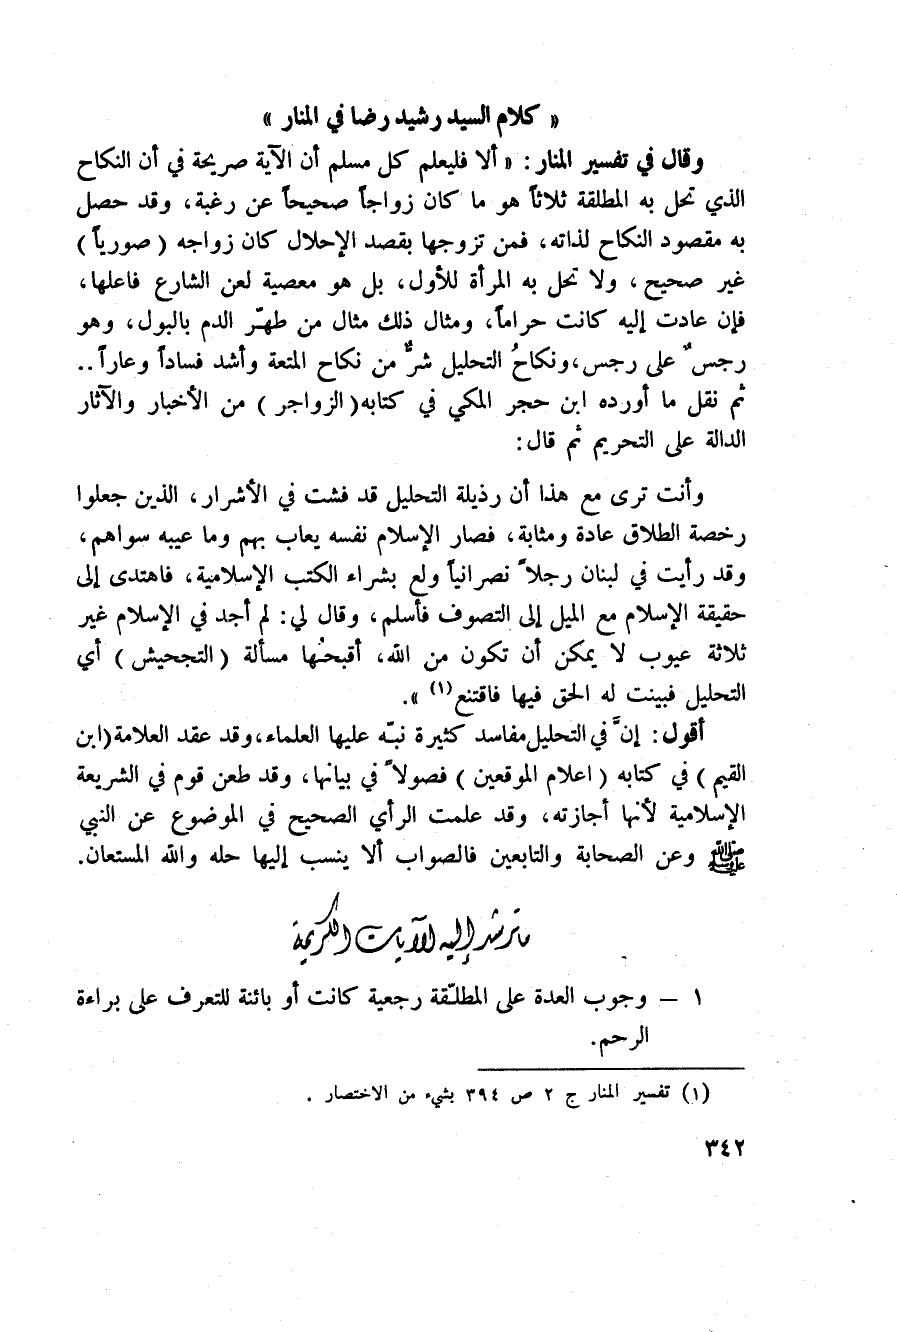 « كلام السيد رشيد رضا في المنار »
وقال في تفسير المنار : « ألا فليعلم كل مسلم أن الآية صريحة في أن النكاح
الذي تحل به المطلقة ثلاثاً هو ما كان زواجاً صحيحاً عن رغبة، وقد حصل
به مقصود النكاح لذاته، فمن تزوجها بقصد الإحلال كان زواجه ( صورياً )
غير صحيح، ولا تحل به المرأة للأول، بل هو معصية لعن الشارع فاعلها،
فإن عادت إليه كانت حراماً، ومثال ذلك مثال من طهّر الدم بالبول، وهو
رجسٌ على رجس، ونكاحُ التحليل شرٌّ من نكاح المتعة وأشد فساداً وعاراً..
ثم نقل ما أورده ابن حجر المكي في كتابه ( الزواجر ) من الأخبار والآثار
الدالة على التحريم ثم قال :
وأنت ترى مع هذا أن رذيلة التحليل قد فشت في الأشرار، الذين جعلوا
رخصة الطلاق عادة ومثابة، فصار الإسلام نفسه يعاب بهم وما عيبه سواهم،
وقد رأيت في لبنان رجلاً نصرانياً ولع بشراء الكتب الإسلامية، فاهتدى إلى
حقيقة الإسلام مع الميل إلى التصوف فأسلم، وقال لي: لم أجد في الإسلام غير
ثلاثة عيوب لا يمكن أن تكون من الله، أقبحُها مسألة ( التجحيش ) أي
التحليل فبينت له الحق فيها فاقتنع (١) ».
أقول : إنَّ في التحليل مفاسد كثيرة نبّه عليها العلماء، وقد عقد العلامة (ابن
القيم ) في كتابه ( اعلام الموقعين ) فصولاً في بيانها، وقد طعن قوم في الشريعة
الإسلامية لأنها أجازته، وقد علمت الرأي الصحيح في الموضوع عن النبي
ﷺ وعن الصحابة والتابعين فالصواب ألا ينسب إليها حله والله المستعان.
ما ترشد إليه الآيات الكريمة
١ – وجوب العدة على المطلّقة رجعية كانت أو بائنة للتعرف على براءة
الرحم.
(١) تفسير المنار ج ٢ ص ٣٩٤ بشيء من الاختصار .
٣٤٢